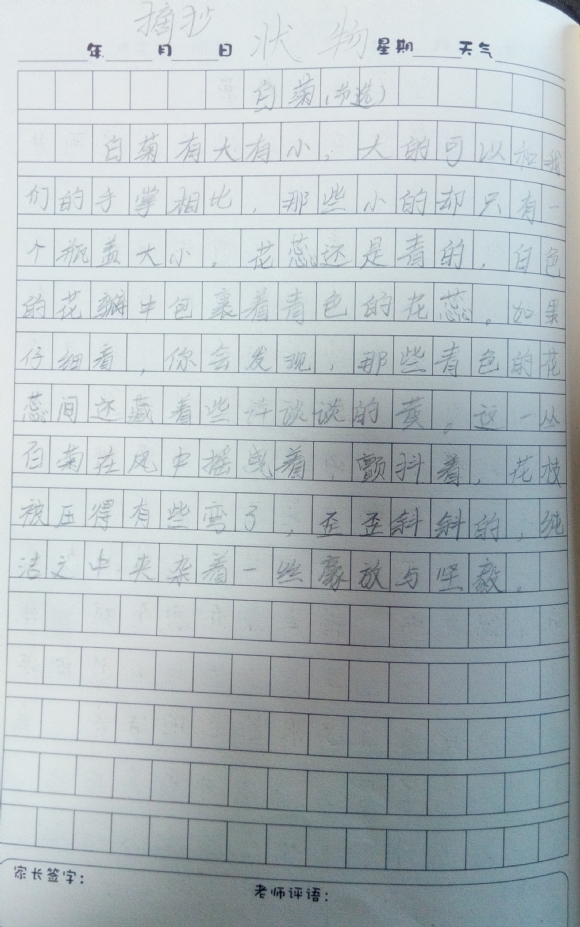 摘抄 状物
年 月 日 星期 天气
白菊(节选)
白菊有大有小,大的可以和我
们的手掌相比,那些小的却只有一
个瓶盖大小。花蕊还是青的,白色
的花瓣中包裹着青色的花蕊。如果
仔细看,你会发现,那些青色的花
蕊间还藏着些许谈谈的黄。这一丛
白菊在风中摇曳着,颤抖着,花枝
被压得有些弯了,歪歪斜斜的,纯
洁之中夹杂着一些豪放与坚毅。
家长签字:
老师评语: